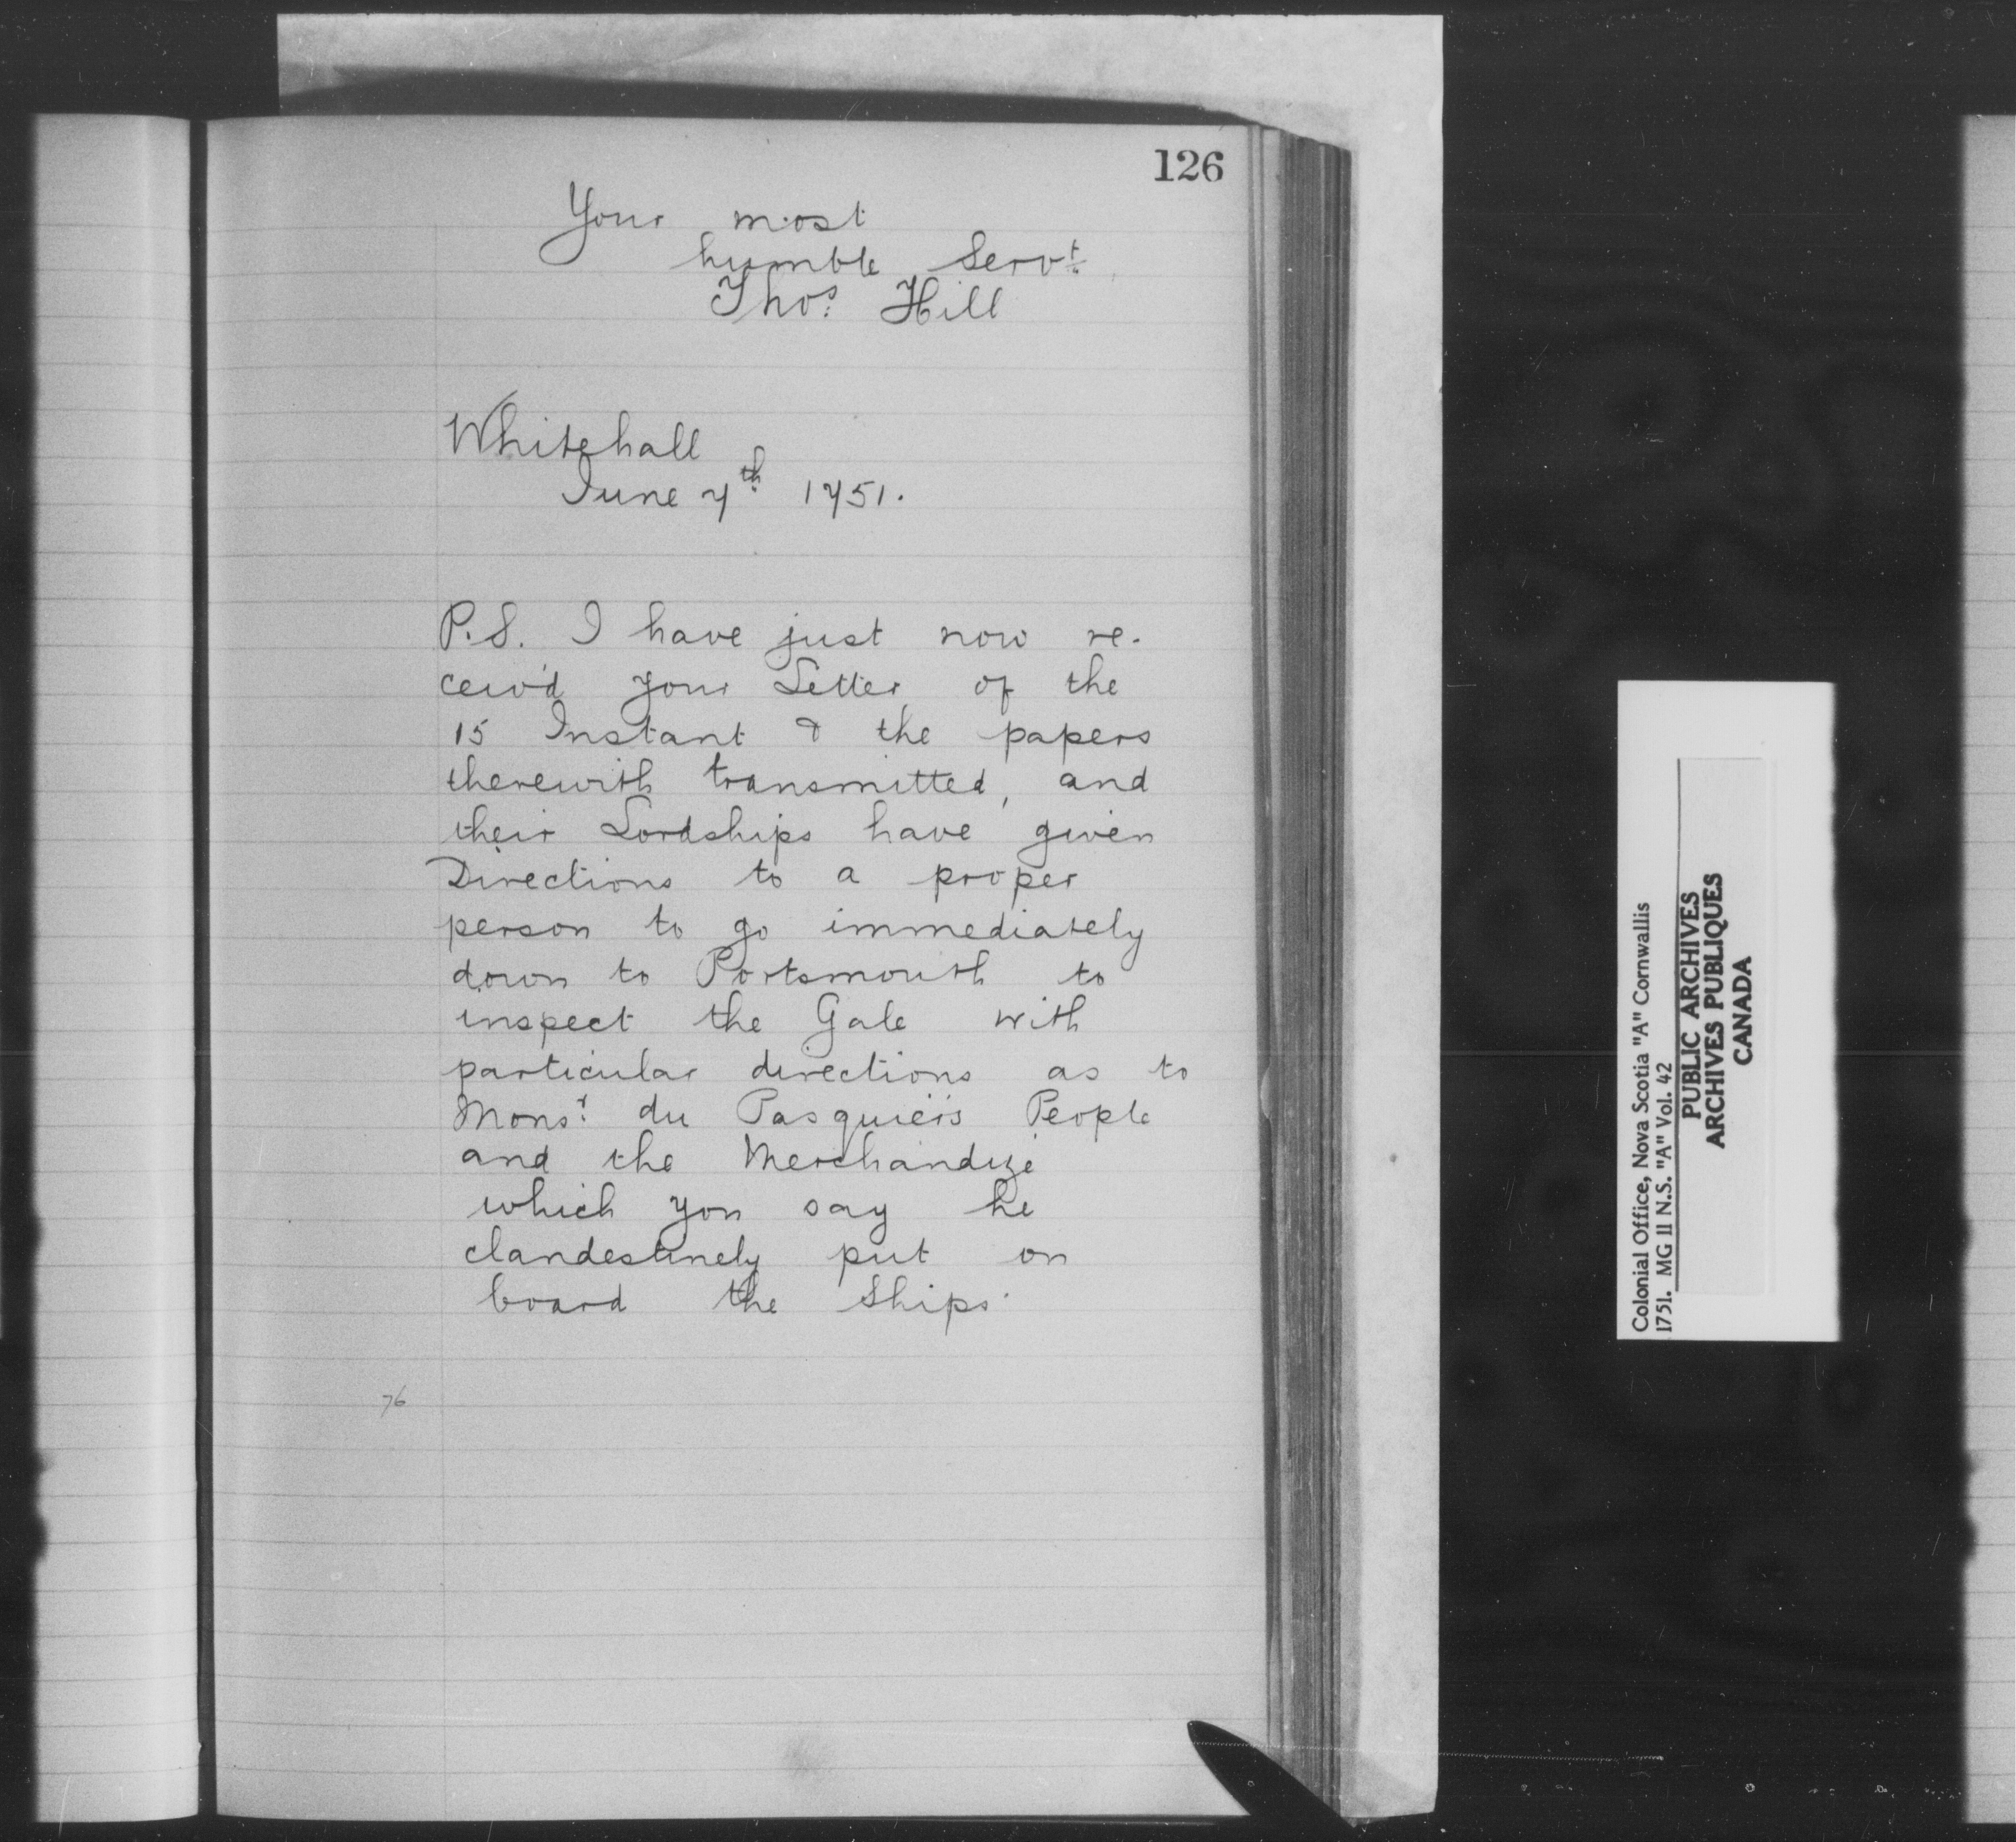 126
Your most
humble Servt.
Thos. Hill
Whitehall
June 7th 1751.
P.S. I have just now re-
ceiv'd your Letter of the
15 Instant & the papers
therewith transmitted, and
their Lordships have given
Directions to a proper
person to go immediately
down to Portsmouth to
inspect the Gale with
particular directions as to
Monsr. du Pasquier's People
and the Merchandize
which you say he
clandestinely put on
board the Ships.
76
Colonial Office, Nova Scotia "A" Cornwallis
1751. MG 11 N.S. "A" Vol. 42
PUBLIC ARCHIVES
ARCHIVES PUBLIQUES
CANADA